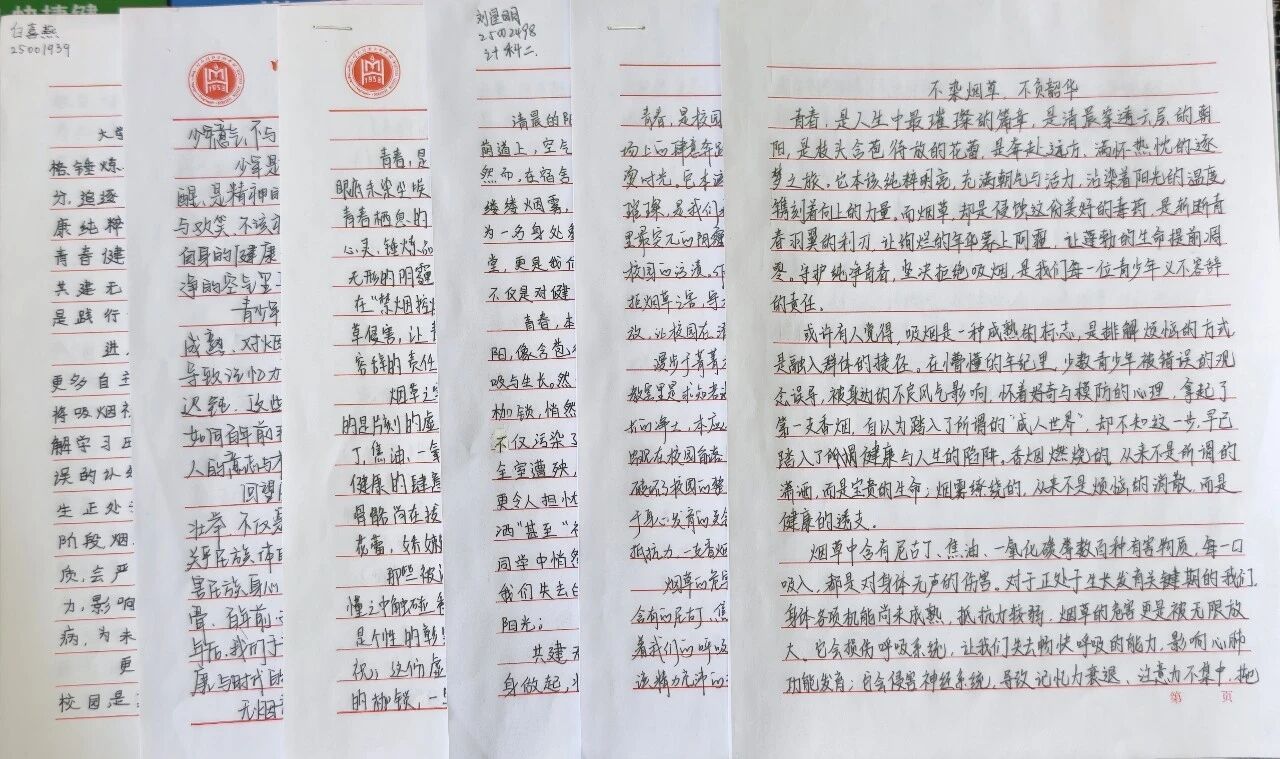 快捷健
白喜燕
25001939
大学
格锤炼
分追逐
康纯粹
青春健
共建无
是践行
进
更多自主
将吸烟视
解学习压
误的认
生正处
阶段烟
质，会严
力，影响
病，为未
更
校园是
1953
少年意气，不与
少年是
醒，是精神的
与欢笑，不该
自身的健康
净的空气里
青少年
成熟、对烟
导致记忆力
迟钝，这些
如同百年前
人的意志与
回望
壮举，不仅是
关乎民族、体
害民族身心
雷，百年前
与否，我们于
康与时代的
无烟
1953
青春，是
眼底未染尘埃
青春栖息的
心灵、锤炼品
无形的阴霾
在“禁烟控
草侵害，让
容辞的责任
烟草之
的是片刻的虚
丁、焦油、一氧
健康的肆意
骨骼尚在拔
花蕾，娇嫩
那些被
懂之中触碰
是个性的彰
祝；这份虚
的枷锁，一
刘星明
25002498
计科二
清晨的阳
荫道上，空气
然而，在宿舍
缕缕烟雾，
为一名身处
堂，更是我们
不仅是对健
青春，本
阳，像含苞
吸与生长。然
枷锁，悄然
不仅污染了
全室遭殃，
更令人担忧
洒”甚至“社
同学中悄然
我们失去自
阳光；
共建无
身做起，
青春，是校园
场上的肆意奔跑
璀璨，是我们
校园的
拒烟草之害，
放，让校园在清
漫步于菁菁
教室里是求知
长的净土，本应
破坏了校园的整
于身心发育的关
抵抗力，一支香烟
烟草的危害
含有的尼古丁、焦
着我们的呼吸
不染烟草，不负韶华
青春，是人生中最璀璨的篇章，是清晨穿透云层的朝
阳，是枝头含苞待放的花蕾，是奔赴远方、满怀热忱的逐
梦之旅。它本该纯粹明亮，充满朝气与活力，沾染着阳光的温度，
镌刻着向上的力量。而烟草，却是侵蚀这份美好的毒药，是折断青
春羽翼的利刃，让绚烂的年华蒙上阴霾，让蓬勃的生命提前凋
零。守护纯净青春，坚决拒绝吸烟，是我们每一位青少年义不容辞
的责任。
或许有人觉得，吸烟是一种成熟的标志，是排解烦恼的方式，
是融入群体的捷径。在懵懂的年纪里，少数青少年被错误的观
念误导，被身边的不良风气影响，怀着好奇与模仿的心理，拿起了
第一支香烟，自以为踏入了所谓的“成人世界”，却不知这一步，早已
踏入了所谓健康与人生的陷阱。香烟燃烧的，从来不是所谓的
潇洒，而是宝贵的生命；烟雾缭绕的，从来不是烦恼的消散，而是
健康的透支。
烟草中含有尼古丁、焦油、一氧化碳等数百种有害物质，每一口
吸入，都是对身体无声的伤害。对于正处于生长发育关键期的我们，
身体各项机能尚未成熟，抵抗力较弱，烟草的危害更是被无限放
大。它会损伤呼吸系统，让我们失去畅快呼吸的能力，影响心肺
功能发育；它会侵害神经系统，导致记忆力衰退、注意力不集中，拖
第 页